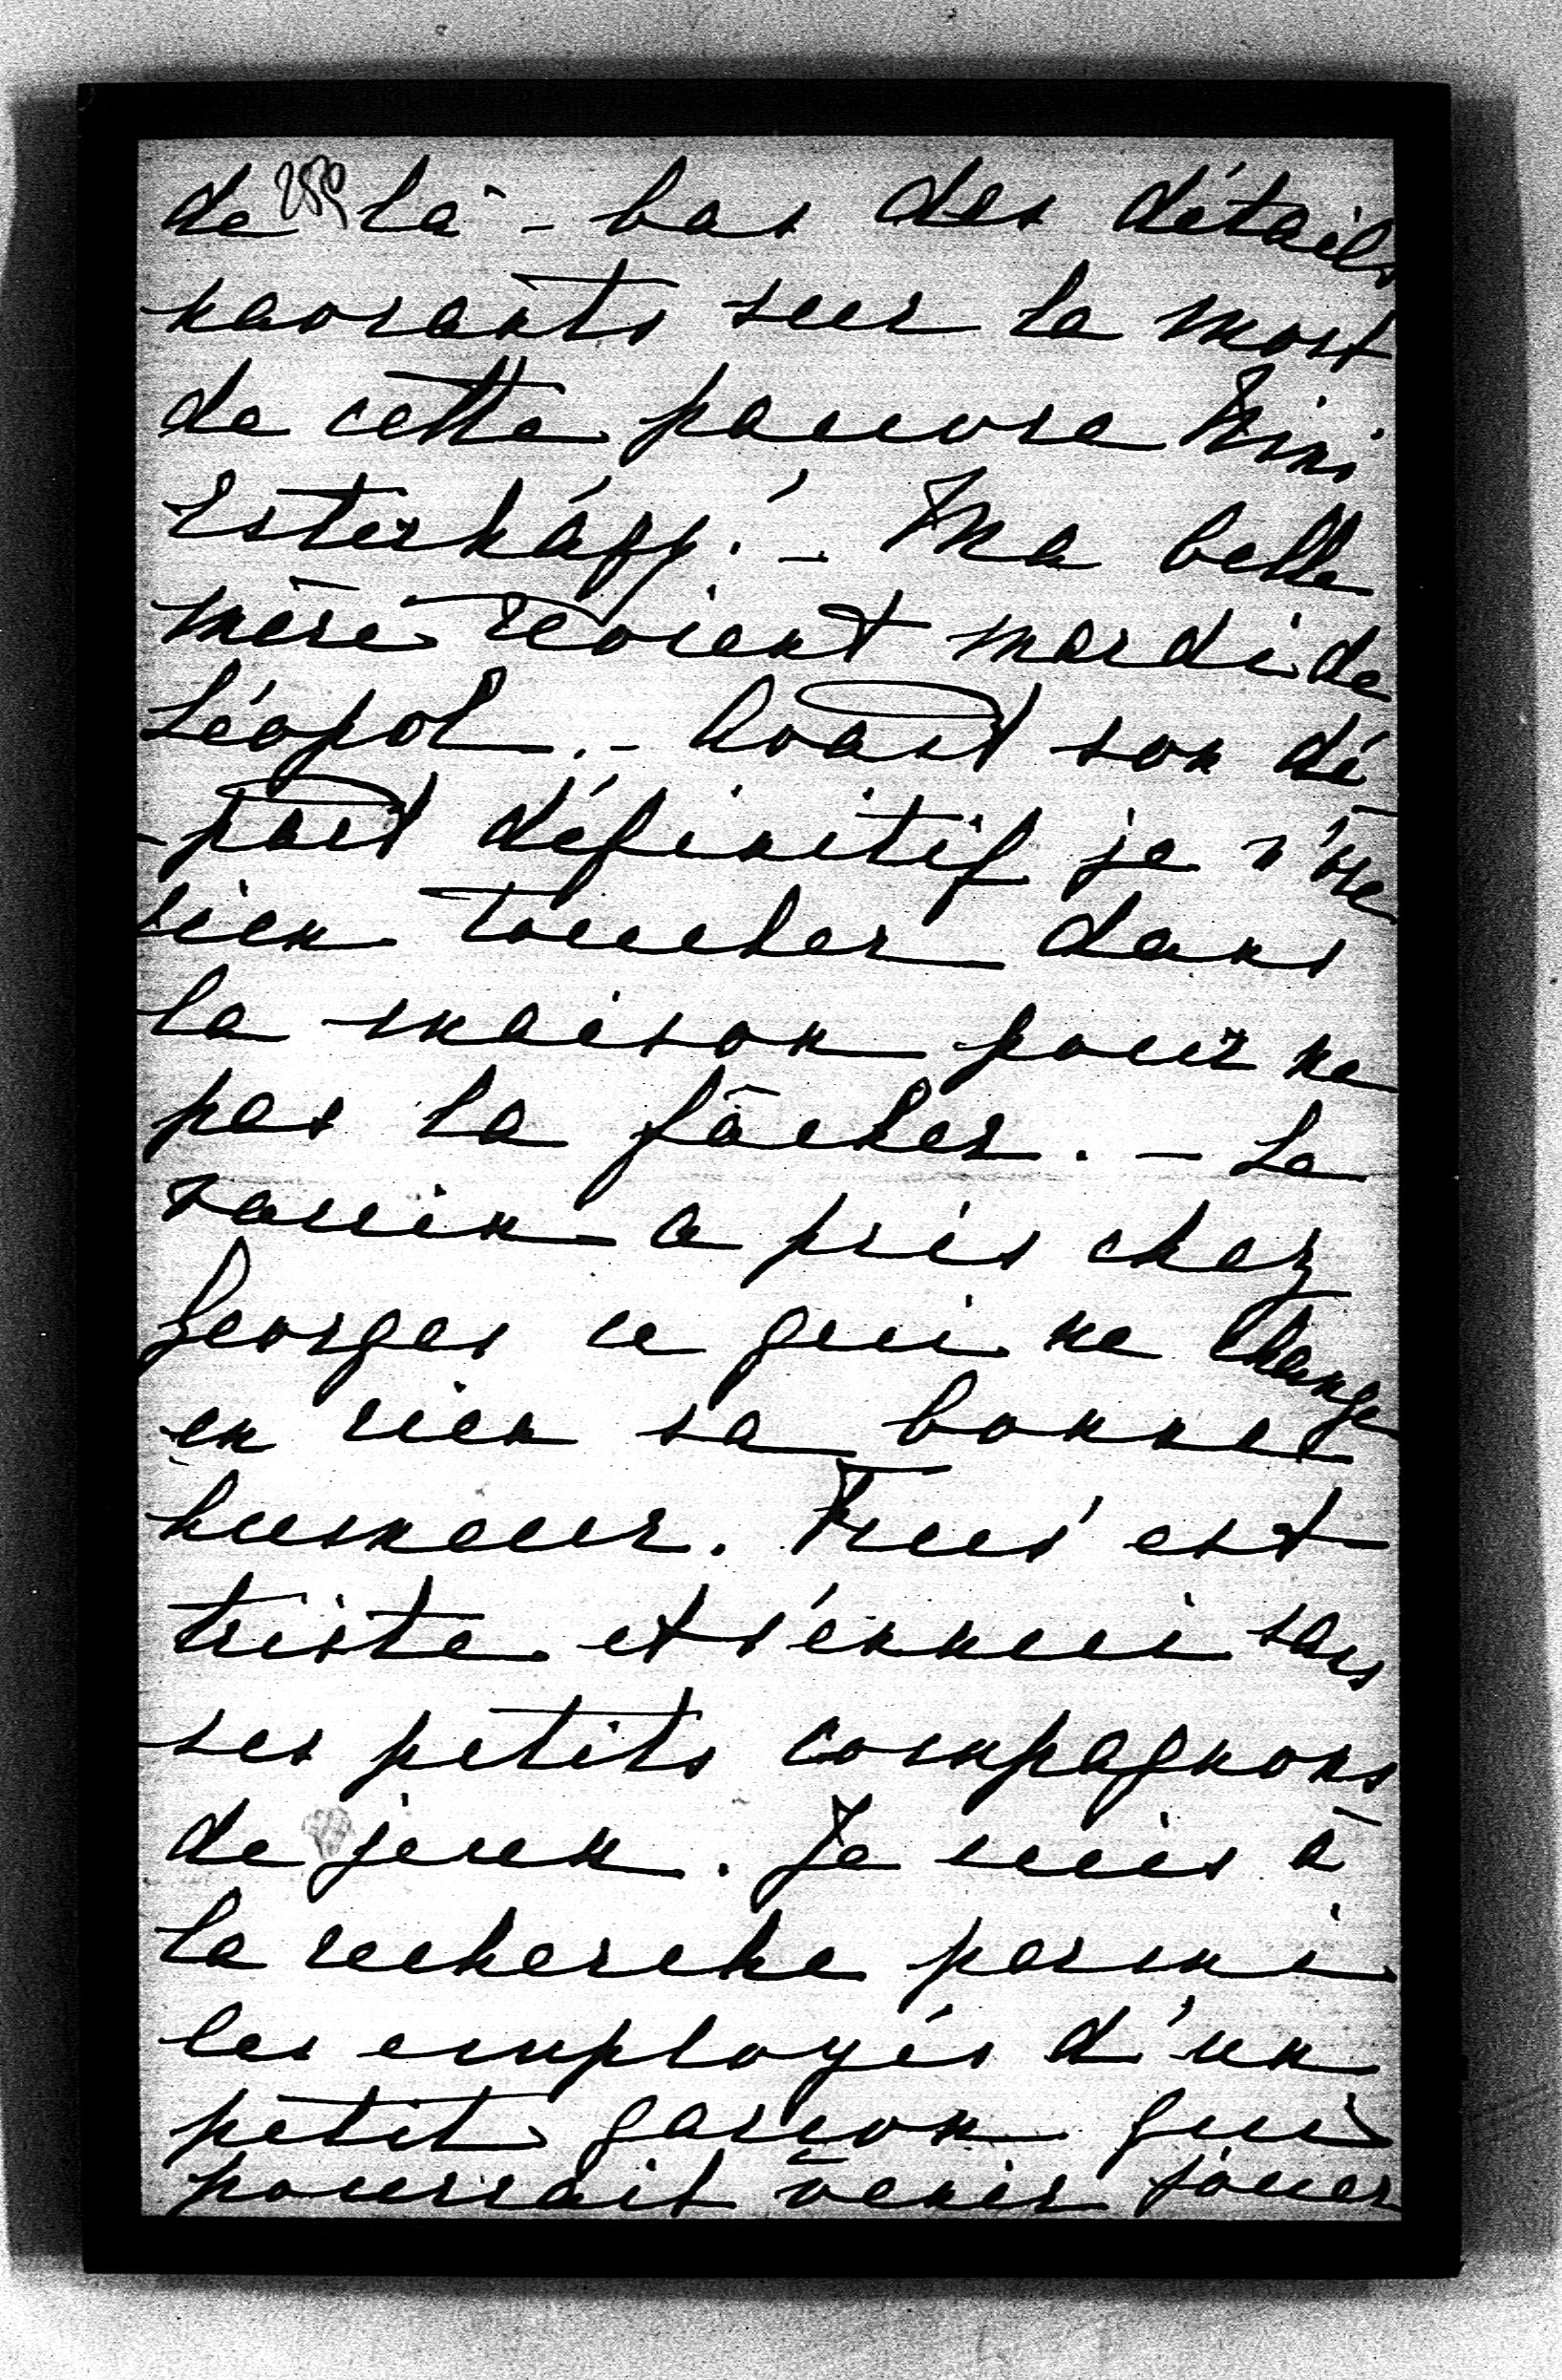 de là - bas des détails
navrants sur la mort
de cette pauvre Nini
Esterházy! - Ma belle
mère revient mardi de
Léopol. - Avant son dé
-part définitif je n'ose
rien toucher dans
la maison pour ne
pas la fâcher. - Le
ravin a pris chez
Georges ce qui ne change
en rien sa bonne
humeur. est
triste et s'ennuie sans
ses petits compagnons
de jeux. Je suis à
la recherche parmi
les employés d'un
petit garçon qui
pourrait venir jouer